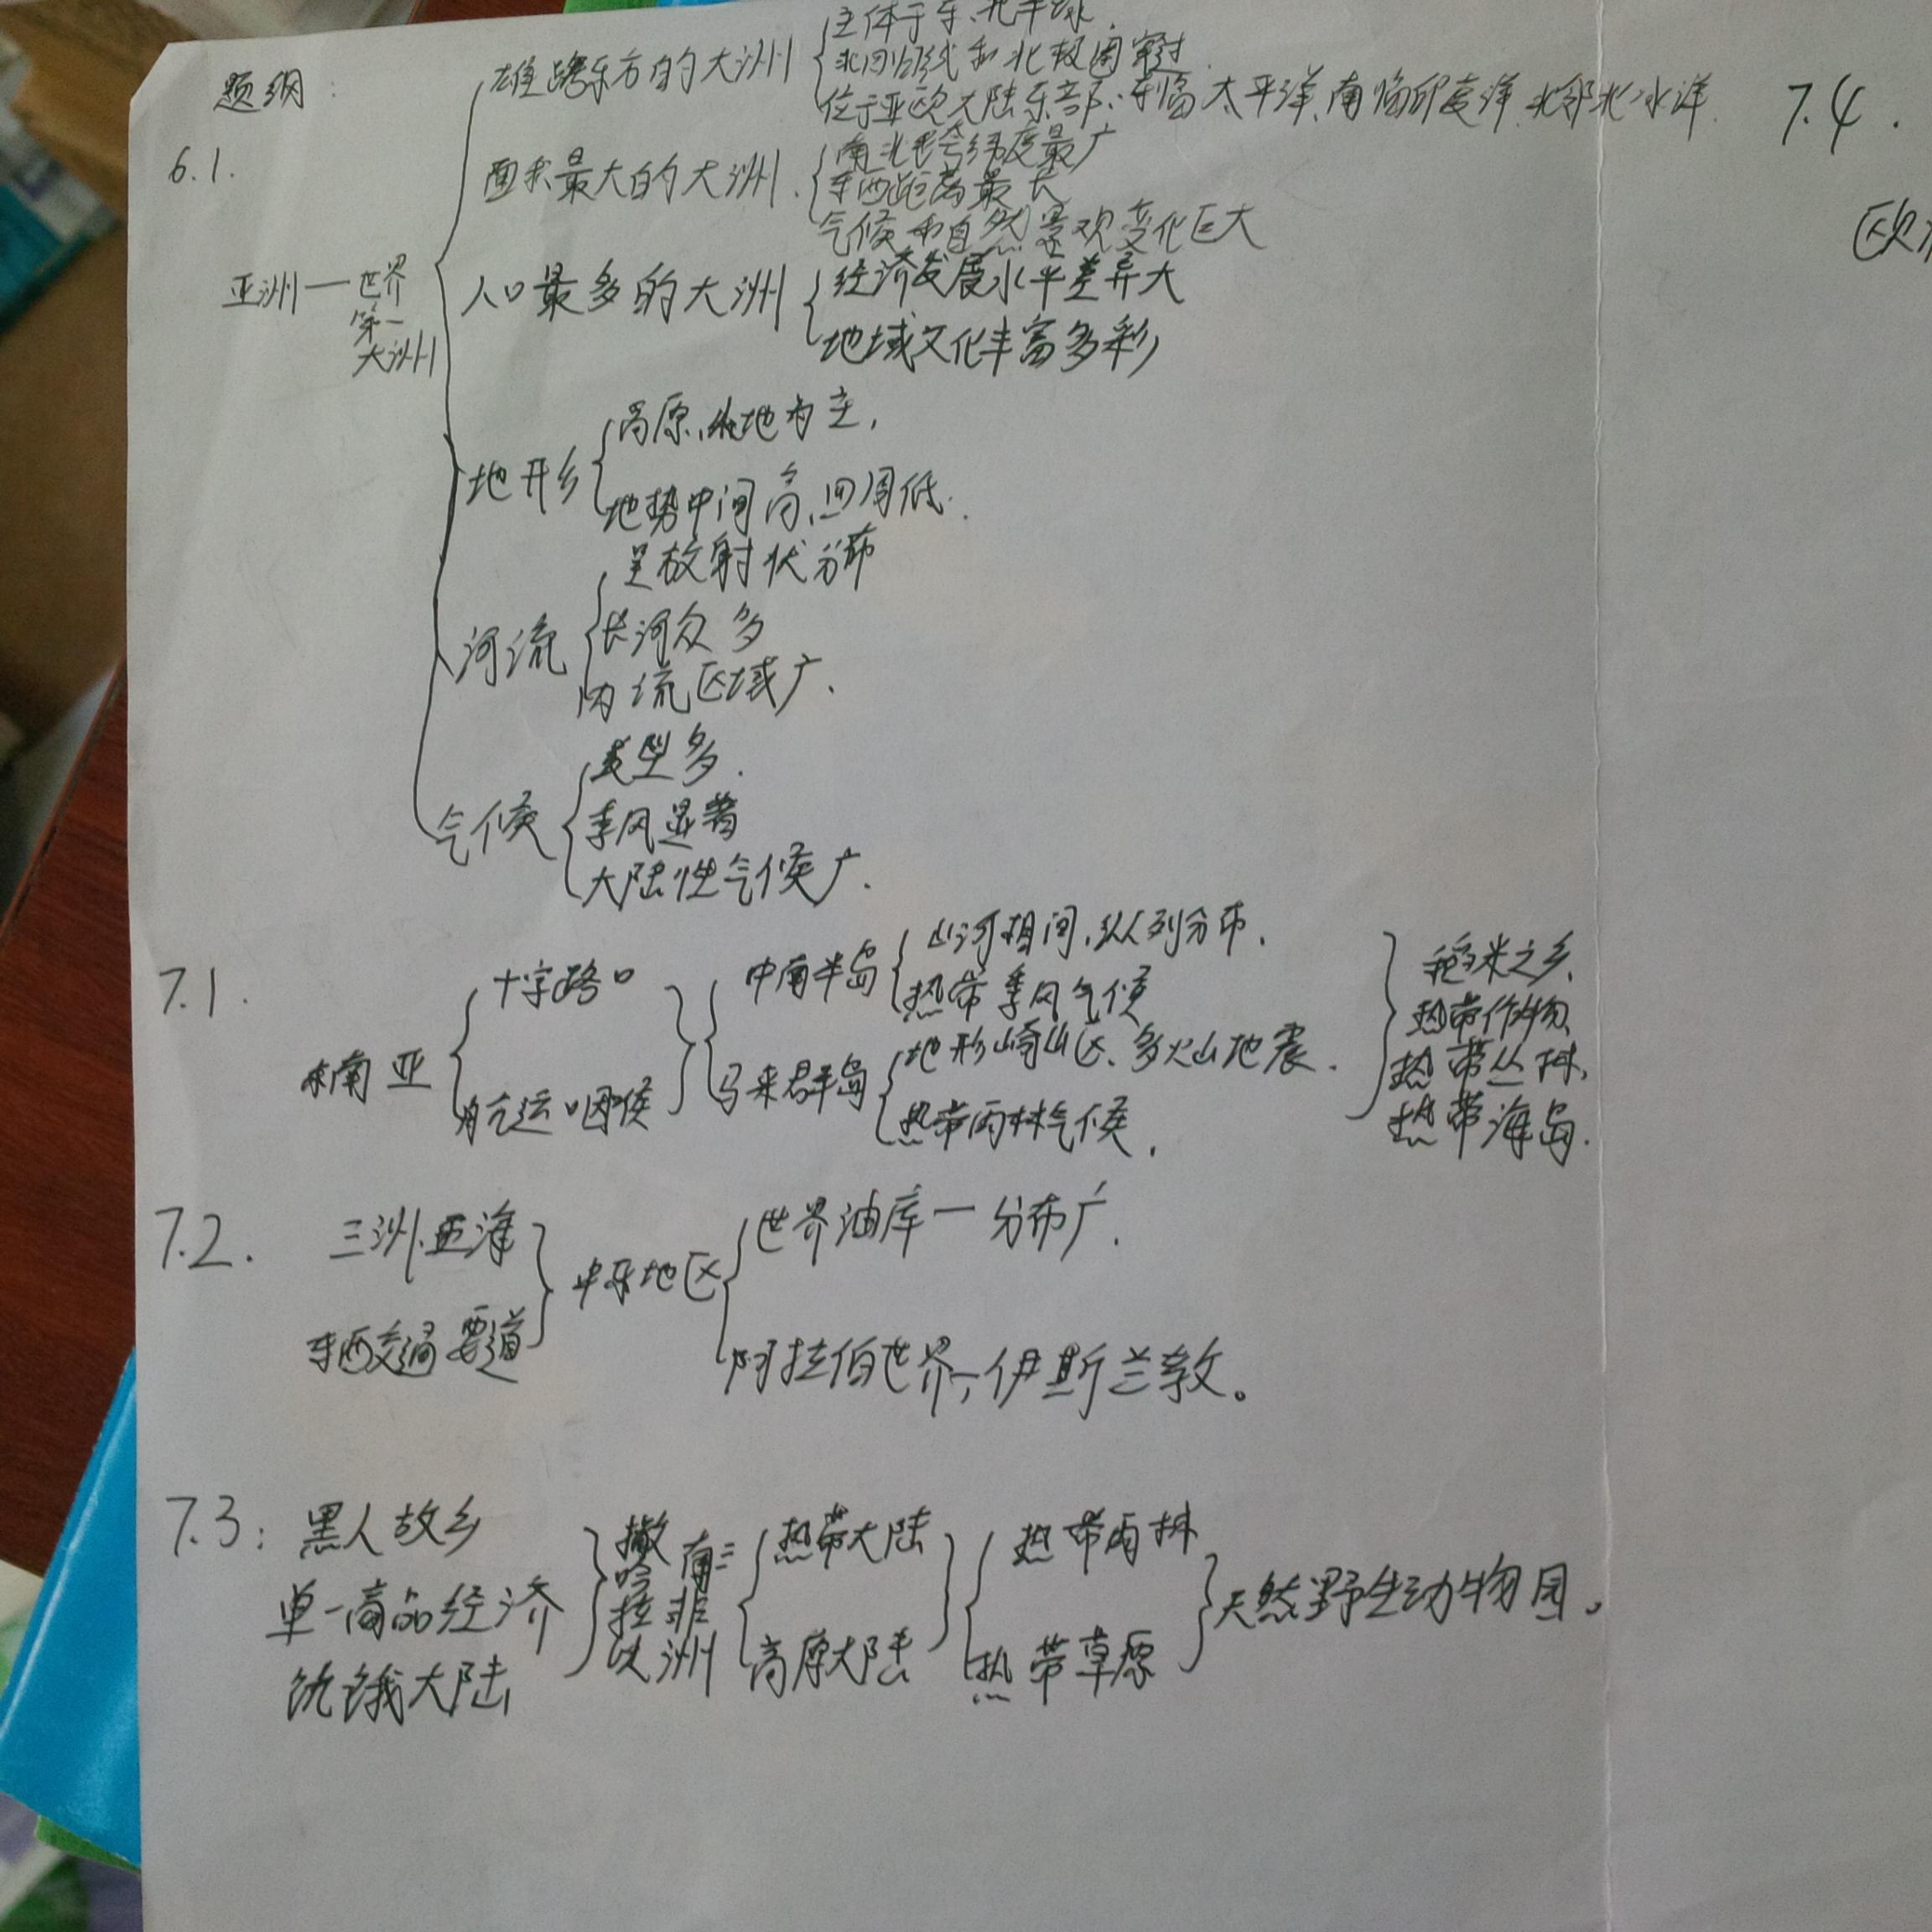 题纲:
6.1.
亚洲—世界
第一
大洲
雄踞东方的大洲
主体于东、北半球
北回归线和北极圈穿过
位于亚欧大陆东部:东临太平洋、南临印度洋、北邻北冰洋.
面积最大的大洲.
南北跨纬度最广
东西距离最长
气候和自然景观变化巨大
人口最多的大洲
经济发展水平差异大
地域文化丰富多彩
地形
高原、山地为主,
地势中间高、四周低.
河流
呈放射状分布
长河众多
内流区域广.
气候
类型多.
季风显著
大陆性气候广.
7.1.
东南亚
十字路口
航运咽喉
中南半岛
山河相间,纵列分布.
热带季风气候
马来群岛
地形崎岖、多火山地震.
热带雨林气候.
稻米之乡、
热带作物、
热带丛林,
热带海岛.
7.2.
三洲五海
东西交通要道
中东地区
世界油库—分布广.
阿拉伯世界,伊斯兰教。
7.3:
黑人故乡
单一商品经济
饥饿大陆
撒哈拉以南非洲
热带大陆
高原大陆
热带雨林
热带草原
天然野生动物园。
7.4.
欧